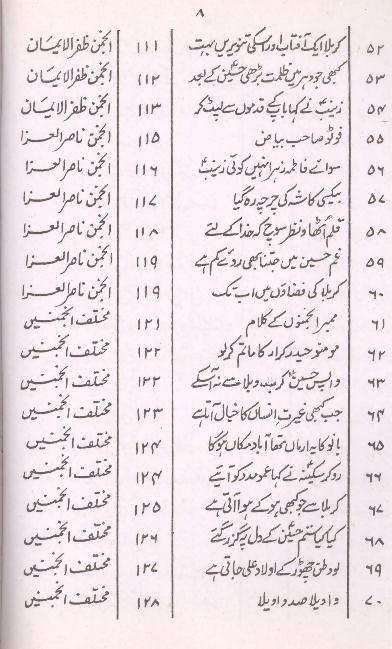 ۸
۵۲ کربلا ایک آفتاب اور اسکی تنویریں بہت ۱۱۱ انجمن ظفر الایمان
۵۳ کبھی جو دہر میں ظلمت بڑھی حسینؑ کے بعد ۱۱۲ انجمن ظفر الایمان
۵۴ زینبؑ نے کہا باپ کے قدموں سے لپٹ کر ۱۱۳ انجمن ظفر الایمان
۵۵ فوٹو صاحب بیاض ۱۱۵ انجمن ناصر العزا
۵۶ سوائے فاطمہ زہرا نہیں کوئی زینبؑ ۱۱۶ انجمن ناصر العزا
۵۷ بیکسی کا شہ کی چرچہ رہ گیا ۱۱۷ انجمن ناصر العزا
۵۸ قلم اُٹھاؤ نظر سوچ کہ خدا کے لئے ۱۱۸ انجمن ناصر العزا
۵۹ غم حسین میں جتنا بھی روئیے کم ہے ۱۱۹ انجمن ناصر العزا
۶۰ کربلا کی فضاؤں میں اب تک ۱۱۹ انجمن ناصر العزا
۶۱ ممبر انجمنوں کے کلام ۱۲۱ مختلف انجمنیں
۶۲ مومنو حیدر کرار کا ماتم کرلو ۱۲۲ مختلف انجمنیں
۶۳ واپس حسینؑ کرب و بلا سے نہ آسکے ۱۲۲ مختلف انجمنیں
۶۴ جب کبھی غیرت انساں کا خیال آتا ہے ۱۲۳ مختلف انجمنیں
۶۵ بانو کا یہ ارماں تھا آباد مکاں ہوگا ۱۲۴ مختلف انجمنیں
۶۶ رو کر سکینہؑ نے کہا عمو مدد کو آیئے ۱۲۴ مختلف انجمنیں
۶۷ کربلا سے جو کبھی ہو کے ہوا آتی ہے ۱۲۵ مختلف انجمنیں
۶۸ کیا کیا ستم حسینؑ کے دل پہ گزر گئے ۱۲۶ مختلف انجمنیں
۶۹ لو وطن چھوڑ کے اولاد علی جاتی ہے ۱۲۷ مختلف انجمنیں
۷۰ واویلا صد واویلا ۱۲۸ مختلف انجمنیں